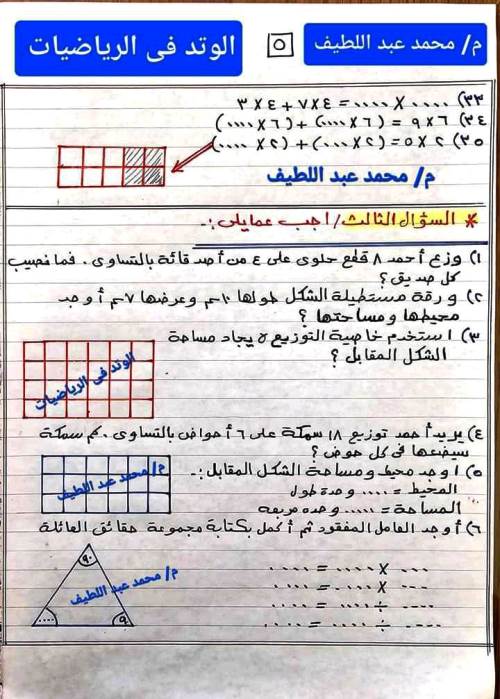 م/ محمد عبد اللطيف
٥
الوتد فى الرياضيات
٣٣) .... × .... = ٤×٧ + ٤×٣
٣٤) ٦×٩ = (٦× ....) + (٦× ....)
٣٥) ٢×٥ = (٢× ....) + (٢× ....)
م/ محمد عبد اللطيف
* السؤال الثالث/ اجب عما يلى :-
١) وزع أحمد ٨ قطع حلوى على ٤ من أصدقائه بالتساوى . فما نصيب
كل صديق ؟
٢) ورقة مستطيلة الشكل طولها ١٠سم وعرضها ٧سم أوجد
محيطها ومساحتها ؟
٣) استخدم خاصية التوزيع لإيجاد مساحة
الشكل المقابل ؟
الوتد فى الرياضيات
٤) يريد أحمد توزيع ١٨ سمكة على ٦ أحواض بالتساوى . كم سمكة
سيضعها فى كل حوض ؟
٥) اوجد محيط ومساحة الشكل المقابل :-
المحيط = .... وحدة طول
المساحة = ..... وحده مربعه
م/ محمد عبد اللطيف
٦) أوجد العامل المفقود ثم أكمل بكتابة مجموعة حقائق العائلة
.... × .... = ....
.... × .... = ....
.... ÷ .... = ....
.... ÷ .... = ....
٩٠
م/ محمد عبد اللطيف
....
٩